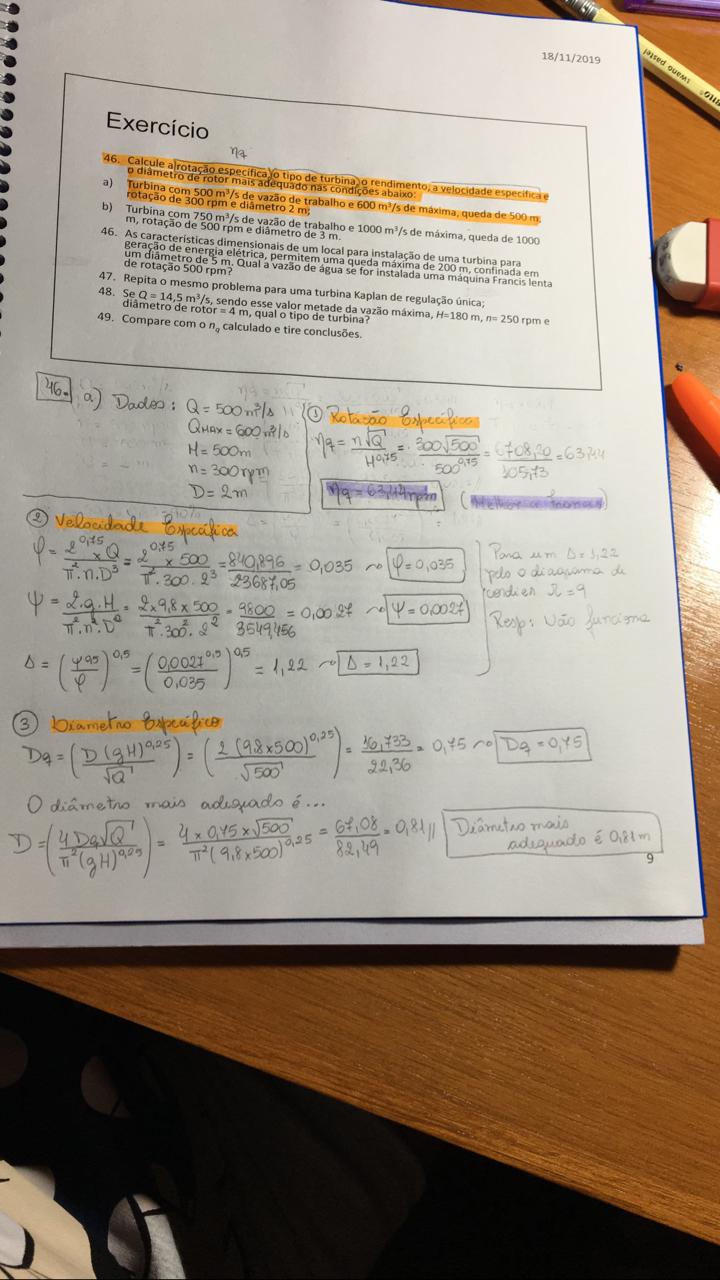 18/11/2019
Exercício
ηq
46. Calcule a rotação específica, o tipo de turbina, o rendimento, a velocidade específica e
o diâmetro de rotor mais adequado nas condições abaixo:
a) Turbina com 500 m³/s de vazão de trabalho e 600 m³/s de máxima, queda de 500 m,
rotação de 300 rpm e diâmetro 2 m;
b) Turbina com 750 m³/s de vazão de trabalho e 1000 m³/s de máxima, queda de 1000
m, rotação de 500 rpm e diâmetro de 3 m.
46. As características dimensionais de um local para instalação de uma turbina para
geração de energia elétrica, permitem uma queda máxima de 200 m, confinada em
um diâmetro de 5 m. Qual a vazão de água se for instalada uma máquina Francis lenta
de rotação 500 rpm?
47. Repita o mesmo problema para uma turbina Kaplan de regulação única;
48. Se Q = 14,5 m³/s, sendo esse valor metade da vazão máxima, H=180 m, n= 250 rpm e
diâmetro de rotor = 4 m, qual o tipo de turbina?
49. Compare com o nq calculado e tire conclusões.
46. a) Dados: Q = 500 m³/s
QMAX = 600 m³/s
H = 500m
n = 300 rpm
D = 2m
① Rotação Específica
ηq = n√Q / H^0,75 = 300√500 / 500^0,75 = 6708,20 / 105,73 = 63,44
ηq = 63,44 rpm
② Velocidade Específica
φ = 2^0,75 × Q / π².n.D³ = 2^0,75 × 500 / π².300.2³ = 840,896 / 23687,05 = 0,035 ~> φ = 0,035
ψ = 2.g.H / π².n².D² = 2×9,8×500 / π².300².2² = 9800 / 3549,456 = 0,0027 ~> ψ = 0,0027
Δ = (ψ^0,5 / φ)^0,5 = (0,0027^0,5 / 0,035)^0,5 = 1,22 ~> Δ = 1,22
Para um Δ = 1,22
pelo o diagrama de
cordier
Resp: Não funciona
③ Diâmetro Específico
Dq = (D (gH)^0,25 / √Q) = (2 (9,8×500)^0,25 / √500) = 16,733 / 22,36 = 0,75 ~> Dq = 0,75
O diâmetro mais adequado é...
D = (4 Dq √Q / π² (gH)^0,25) = 4 × 0,75 × √500 / π² (9,8×500)^0,25 = 67,08 / 82,49 = 0,81 //
Diâmetro mais
adequado é 0,81 m
9